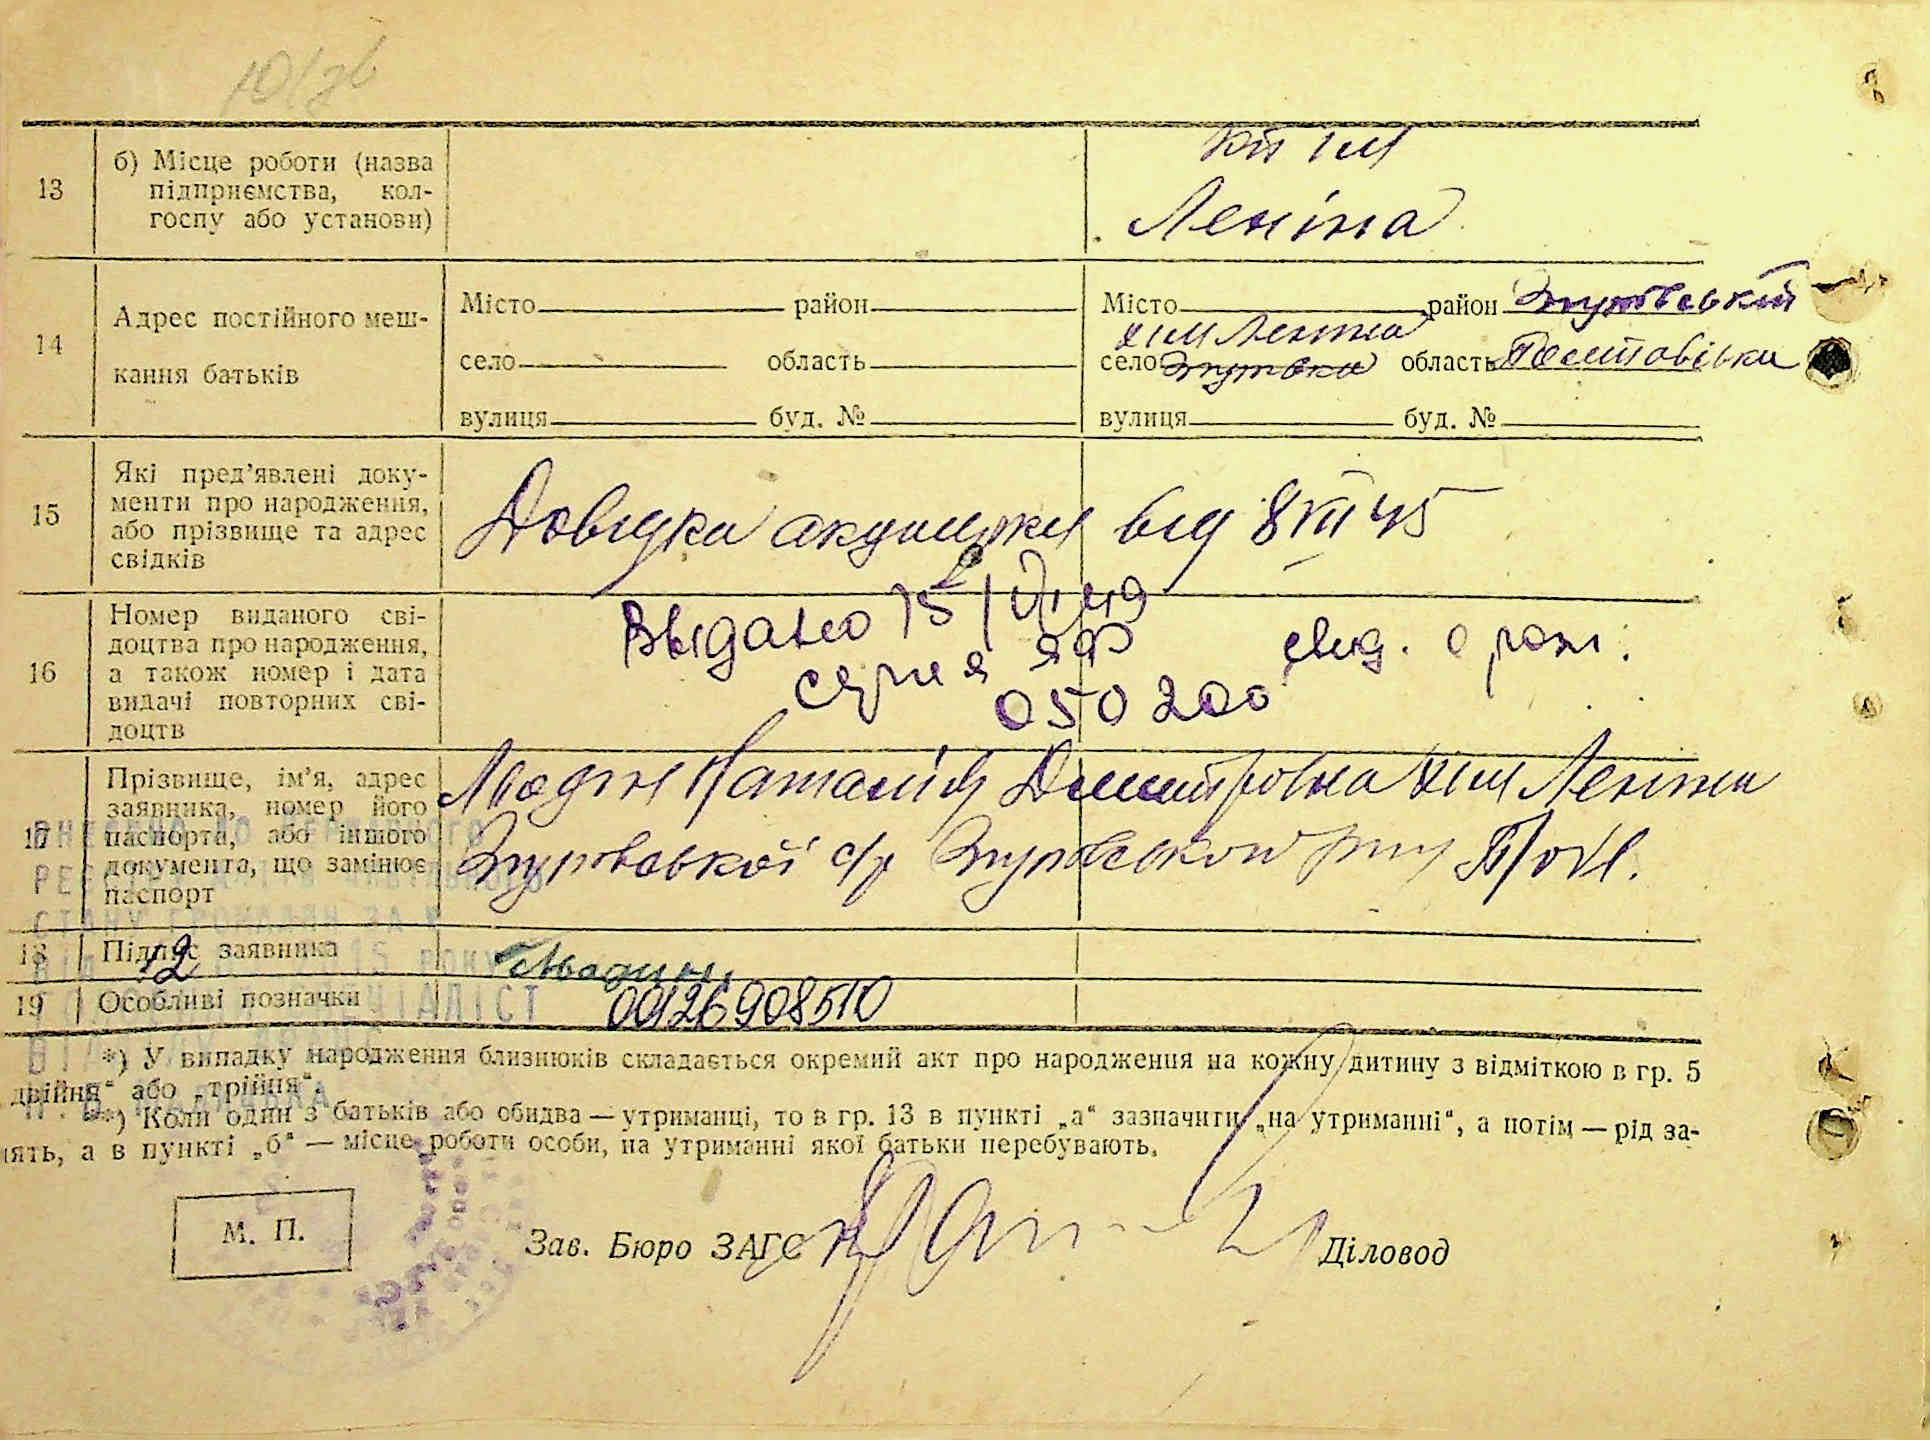 13
б) Місце роботи (назва
підприємства, кол-
госпу або установи)
к-п ім
Леніна
14
Адрес постійного меш-
кання батьків
Місто район
село область
вулиця буд. №
Місто район Згурівський
х ім Леніна
село Згурівка область Полтавська
вулиця буд. №
15
Які пред’явлені доку-
менти про народження,
або прізвище та адрес
свідків
Довідка акушерки від 8 VII 45
16
Номер виданого сві-
доцтва про народження,
а також номер і дата
видачі повторних сві-
доцтв
Выдано 15/VI 49
серия ЯФ свид. о рож.
050200
17
Прізвище, ім’я, адрес
заявника, номер його
паспорта, або іншого
документа, що замінює
паспорт
Наталія Дмитрівна х ім Леніна
Згурівської с/р Згурівського р-ну
18
Підпис заявника
12
19
Особливі позначки
00126908510
*) У випадку народження близнюків складається окремий акт про народження на кожну дитину з відміткою в гр. 5
двійня“ або „трійня“.
**) Коли один з батьків або обидва — утриманці, то в гр. 13 в пункті „а“ зазначити „на утриманні“, а потім — рід за-
нять, а в пункті „б“ — місце роботи особи, на утриманні якої батьки перебувають.
М. П.
Зав. Бюро ЗАГС
Діловод